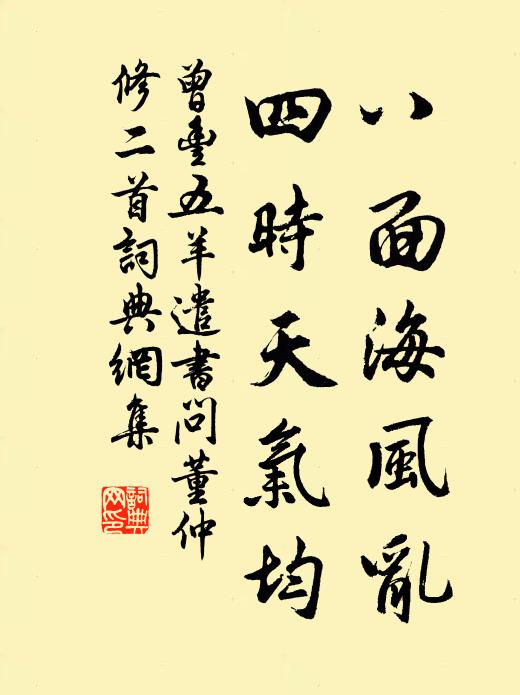 八面海風亂
四時天氣均
曾豊五羊遣書問董仲
修二首詞典網集
詞典
网印